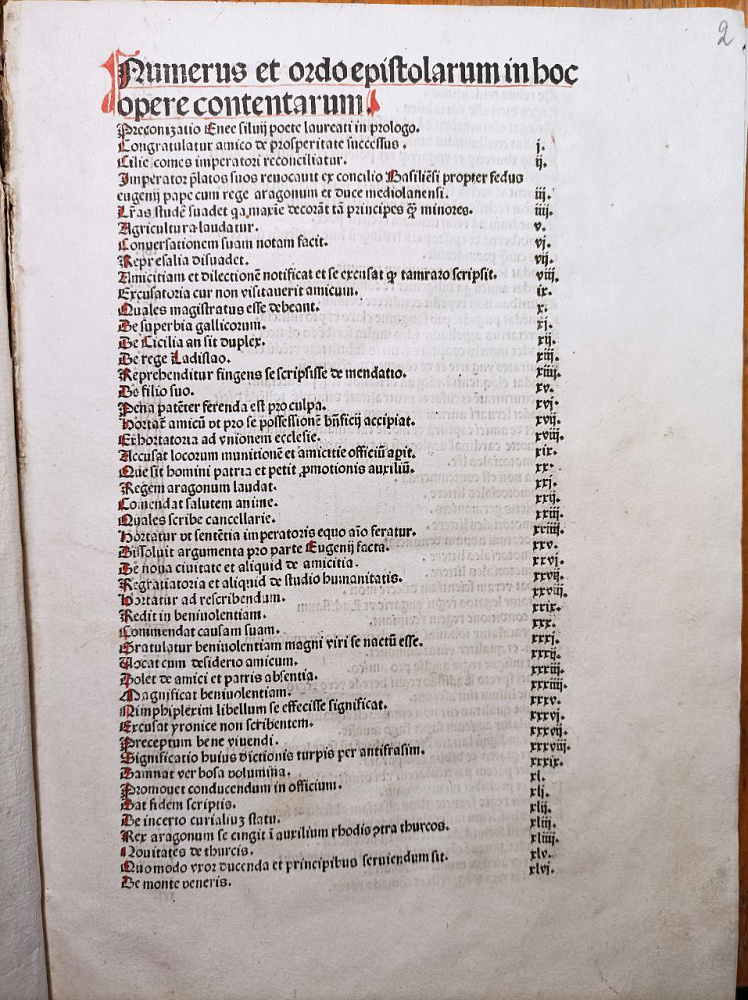 2
Numerus et ordo epistolarum in hoc
opere contentarum.
Preconizatio Enee siluij poete laureati in prologo.
Congratulatur amico de prosperitate successus. j.
Cilie comes imperatori reconciliatur. ij.
Imperator p̄latos suos reuocauit ex concilio Basiliēsi propter fedus
eugenij pape cum rege aragonum et duce mediolanensi. iij.
Lr̄as studē suadet qa maxīe decorāt tā principes q̄ȝ minores. iiij.
Agricultura laudatur. v.
Conuersationem suam notam facit. vj.
Represalia disuadet. vij.
Amicitiam et dilectionē notificat et se excusat ꝙ tam raro scripsit. viij.
Excusatoria cur non visitauerit amicum. ix.
Quales magistratus esse debeant. x.
De superbia gallicorum. xj.
De Cicilia an sit duplex. xij.
De rege Ladislao. xiij.
Reprehenditur fingens se scripsisse de mendatio. xiiij.
De filio suo. xv.
Pena patēter ferenda est pro culpa. xvj.
Hortat̄ amicū vt pro se possessionē bn̄ficij accipiat. xvij.
Exhortatoria ad vnionem ecclesie. xviij.
Accusat locorum munitionē et amicitie officiū apit. xix.
Que sit homini patria et petit ꝓmotionis auxiliū. xx.
Regem aragonum laudat. xxj.
Comendat salutem anime. xxij.
Quales scribe cancellarie. xxiij.
Hortatur vt sentētia imperatoris equo aīo feratur. xxiiij.
Dissoluit argumenta pro parte Eugenij facta. xxv.
De noua ciuitate et aliquid de amicitia. xxvj.
Regratiatoria et aliquid de studio humanitatis. xxvij.
Hortatur ad rescribendum. xxviij.
Redit in beniuolentiam. xxix.
Commendat causam suam. xxx.
Gratulatur beniuolentiam magni viri se nactū esse. xxxj.
Vocat cum desiderio amicum. xxxij.
Dolet de amici et patris absentia. xxxiij.
Magnificat beniuolentiam. xxxiiij.
Nimphiplexim libellum se effecisse significat. xxxv.
Excusat yronice non scribentem. xxxvj.
Preceptum bene viuendi. xxxvij.
Significatio huius dictionis turpis per antifrasim. xxxviij.
Damnat verbosa volumina. xxxix.
Promouet conducendum in officium. xl.
Dat fidem scriptis. xlj.
De incerto curialiuȝ statu. xlij.
Rex aragonum se cingit ī auxilium rhodis ꝯtra thurcos. xliij.
Nouitates de thurcis. xliiij.
Quomodo vxor ducenda et principibus seruiendum sit. xlv.
De monte veneris. xlvj.